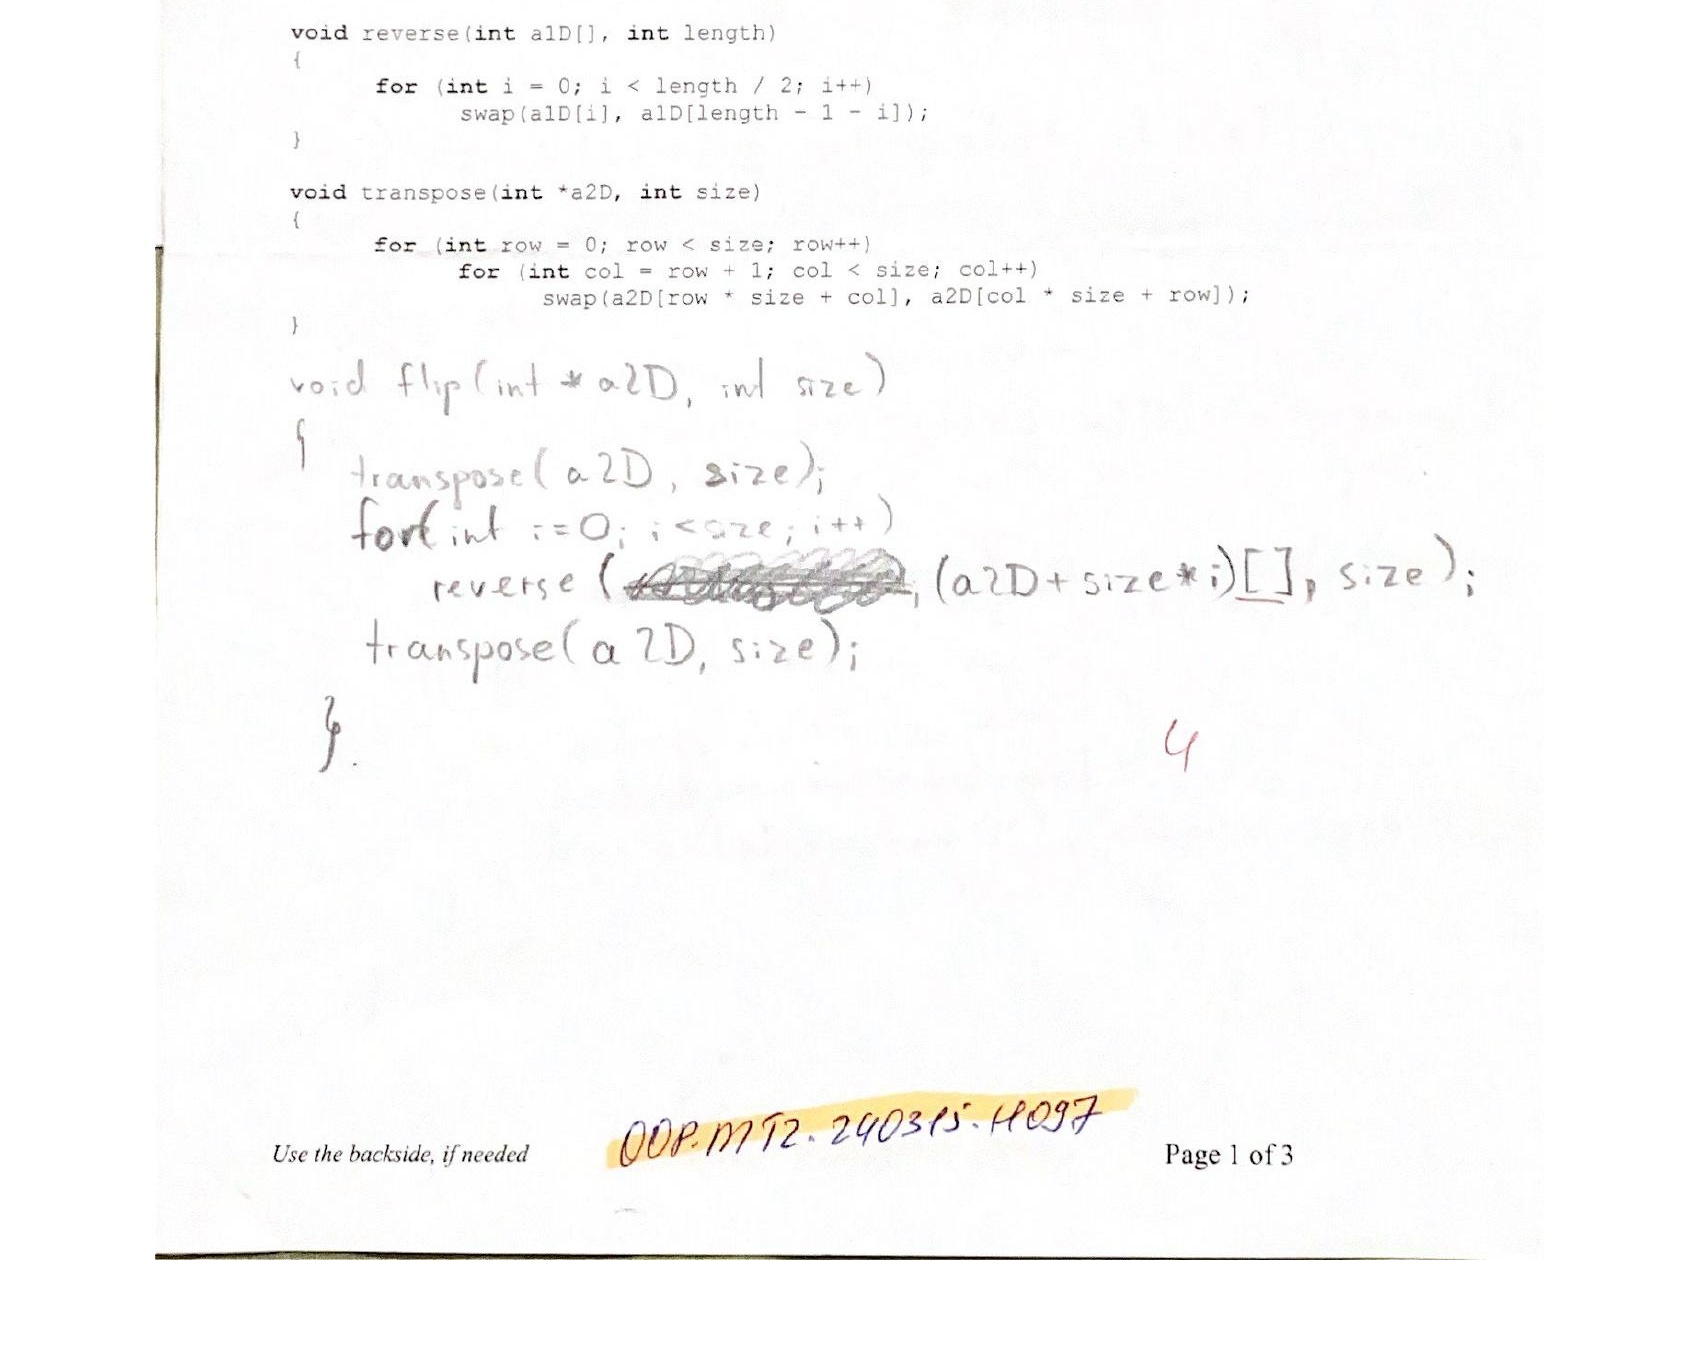 void reverse(int a1D[], int length)
{
for (int i = 0; i < length / 2; i++)
swap(a1D[i], a1D[length - 1 - i]);
}
void transpose(int *a2D, int size)
{
for (int row = 0; row < size; row++)
for (int col = row + 1; col < size; col++)
swap(a2D[row * size + col], a2D[col * size + row]);
}
void flip(int * a2D, int size)
{
transpose(a2D, size);
for(int i=0; i<size; i++)
reverse( (a2D+size*i)[], size);
transpose(a2D, size);
}
4
OOP.MT2.240315.H097
Use the backside, if needed
Page 1 of 3